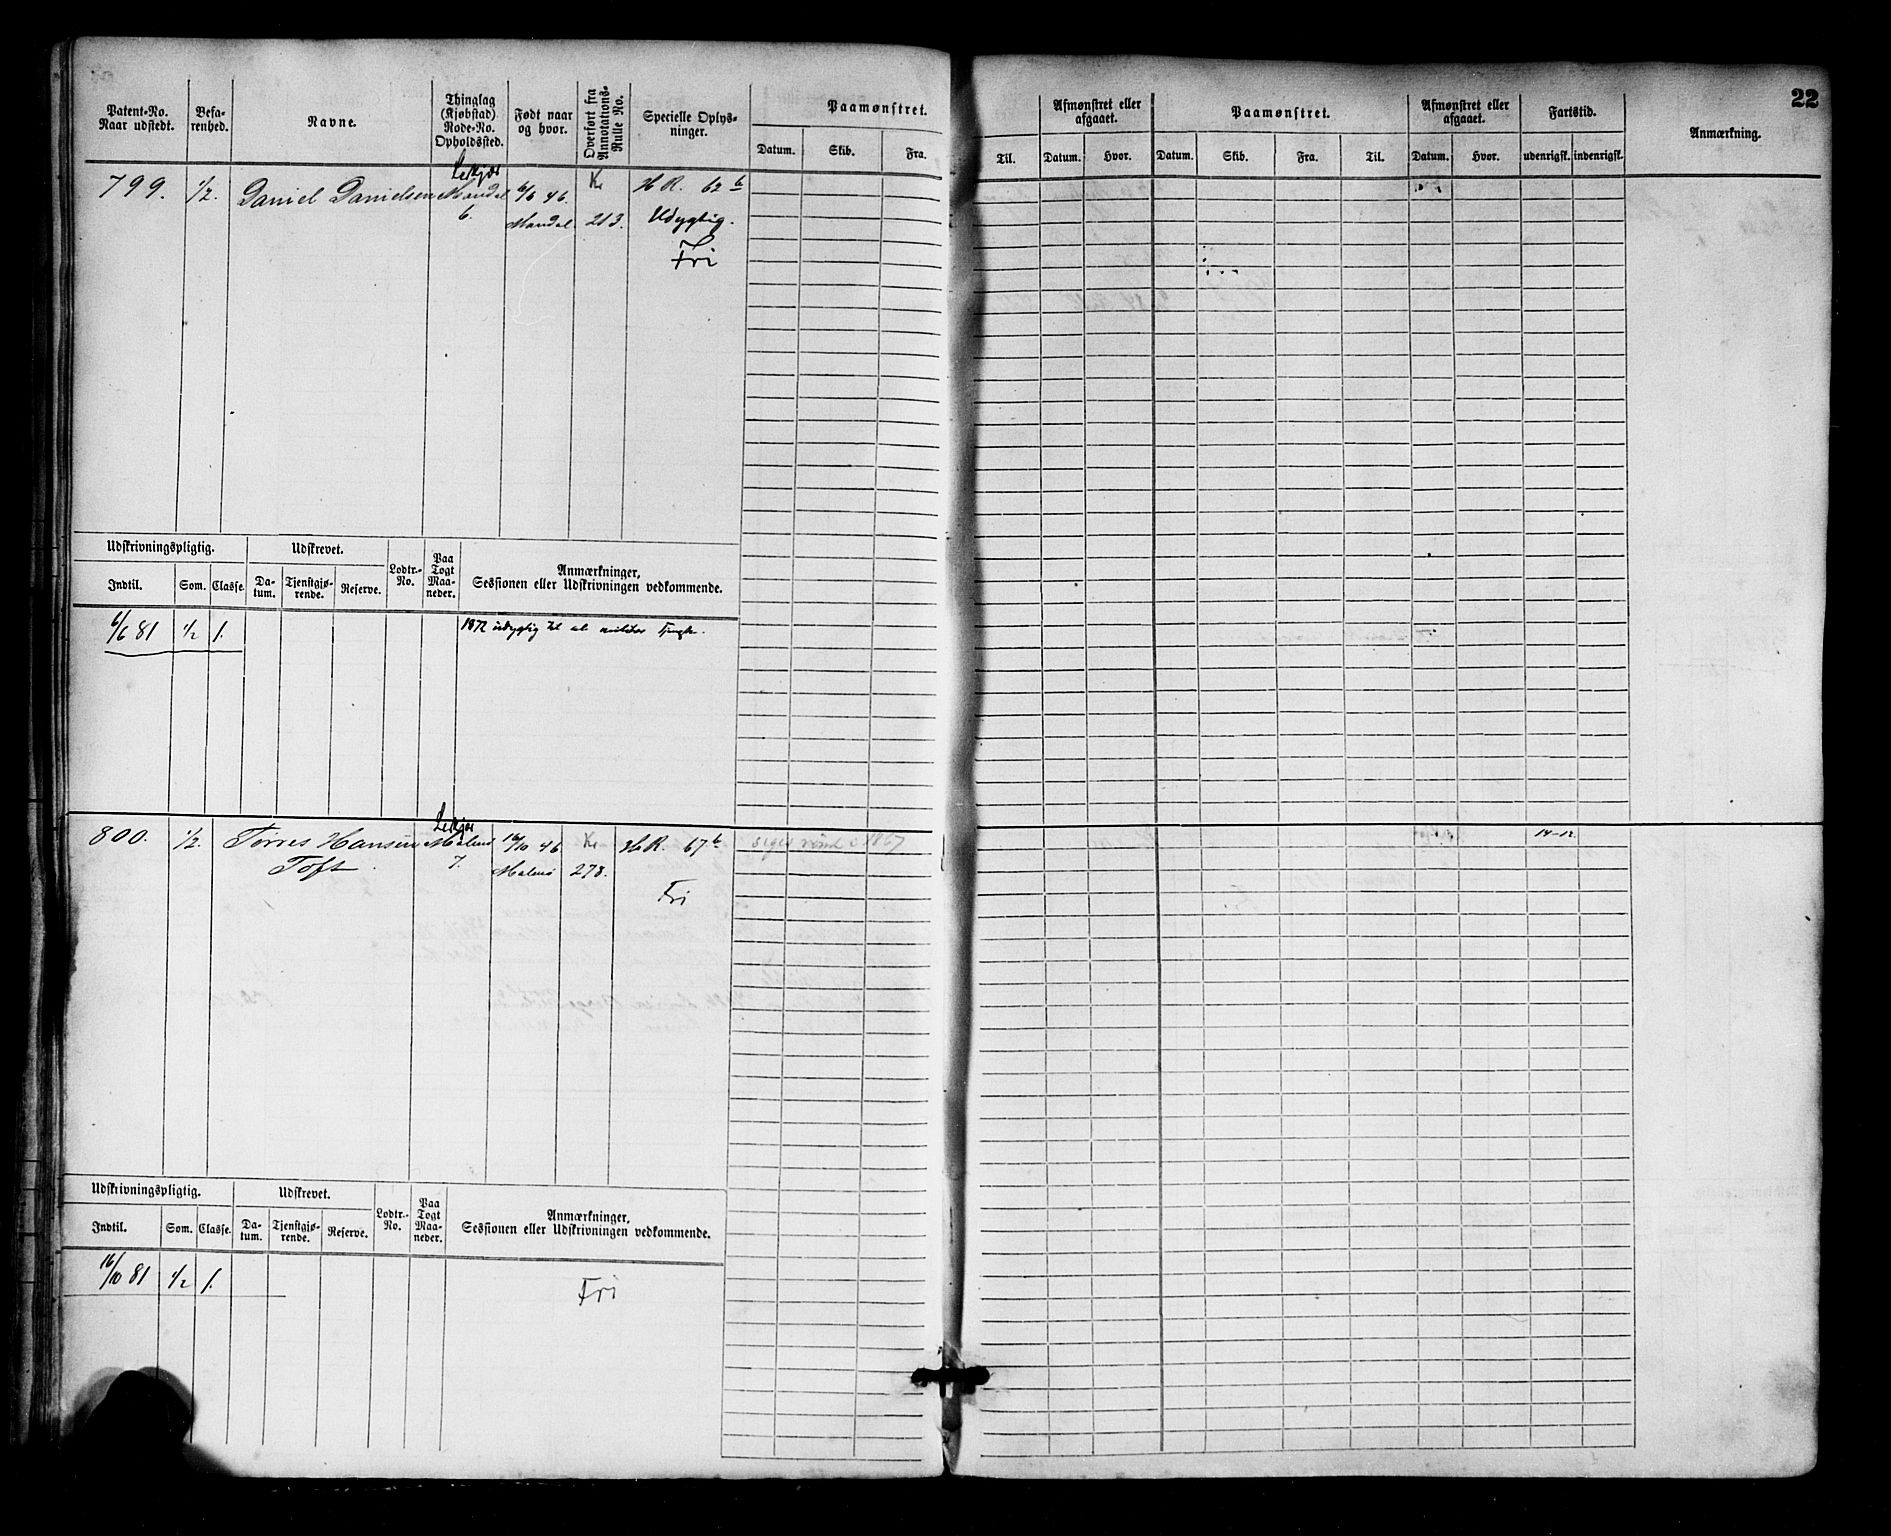 22
Patent-No. Naar udstedt.
Befarenhed.
Navne.
Thinglag (Kjøbstad) Rode-No. Opholdssted.
Født naar og hvor.
Overført fra Annotations-Rulle No.
Specielle Oplysninger.
Paamønstret.
Datum. Skib. Fra.
Til.
Afmønstret eller afgaaet.
Datum. Hvor.
Paamønstret.
Datum. Skib. Fra. Til.
Afmønstret eller afgaaet.
Datum. Hvor.
Fartstid.
udenrigsk. indenrigsk.
Anmærkning.
799. 1/2. Daniel Danielsen Mandal 6/6 46. HR. 62 b
6. Mandal 213. Udygtig.
Fri
Udskrivningspligtig. Udskrevet. Lodtr.-No. Paa Togt Maaneder. Anmærkninger, Sessionen eller Udskrivningen vedkommende.
Indtil. Som. Classe. Datum. Tjenstgjørende. Reserve.
6/6 81 1/2 1. 1872 udygtig til al militær
800. 1/2. Tørres Hansen 16/10 46 HR. 67 b 1867
Toft 7. 278.
Fri
14-12
Udskrivningspligtig. Udskrevet. Lodtr.-No. Paa Togt Maaneder. Anmærkninger, Sessionen eller Udskrivningen vedkommende.
Indtil. Som. Classe. Datum. Tjenstgjørende. Reserve.
16/10 81 1/2 1. Fri